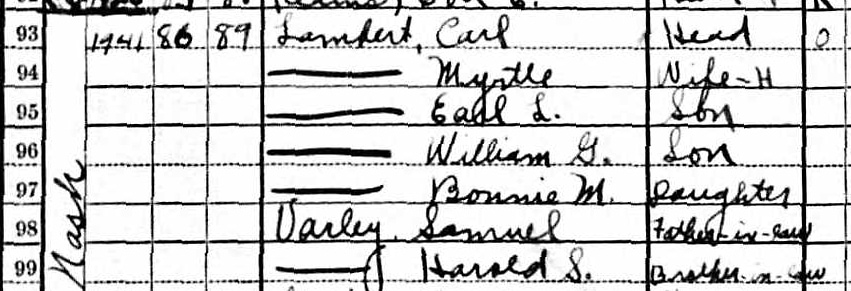 93 1941 86 89 Lampert, Carl Head O
94 —— Myrtle Wife-H
95 —— Earl L. Son
96 —— William G. Son
97 —— Bonnie M. Daughter
98 Varley, Samuel Father-in-law
99 —— Harold S. Brother-in-law
Nash